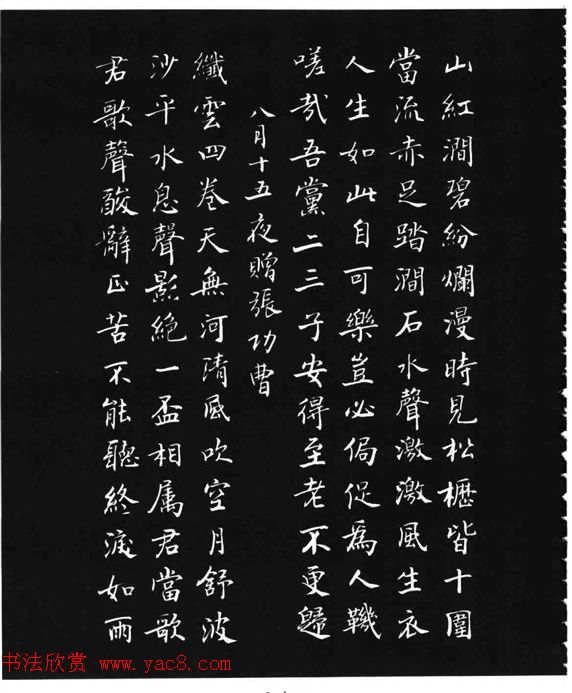 山紅澗碧紛爛漫時見松櫪皆十圍
當流赤足踏澗石水聲激激風生衣
人生如此自可樂豈必侷促為人鞿
嗟哉吾黨二三子安得至老不更歸
八月十五夜贈張功曹
纖雲四卷天無河清風吹空月舒波
沙平水息聲影絕一盃相屬君當歌
君歌聲酸辭正苦不能聽終淚如雨
书法欣赏 www.yac8.com